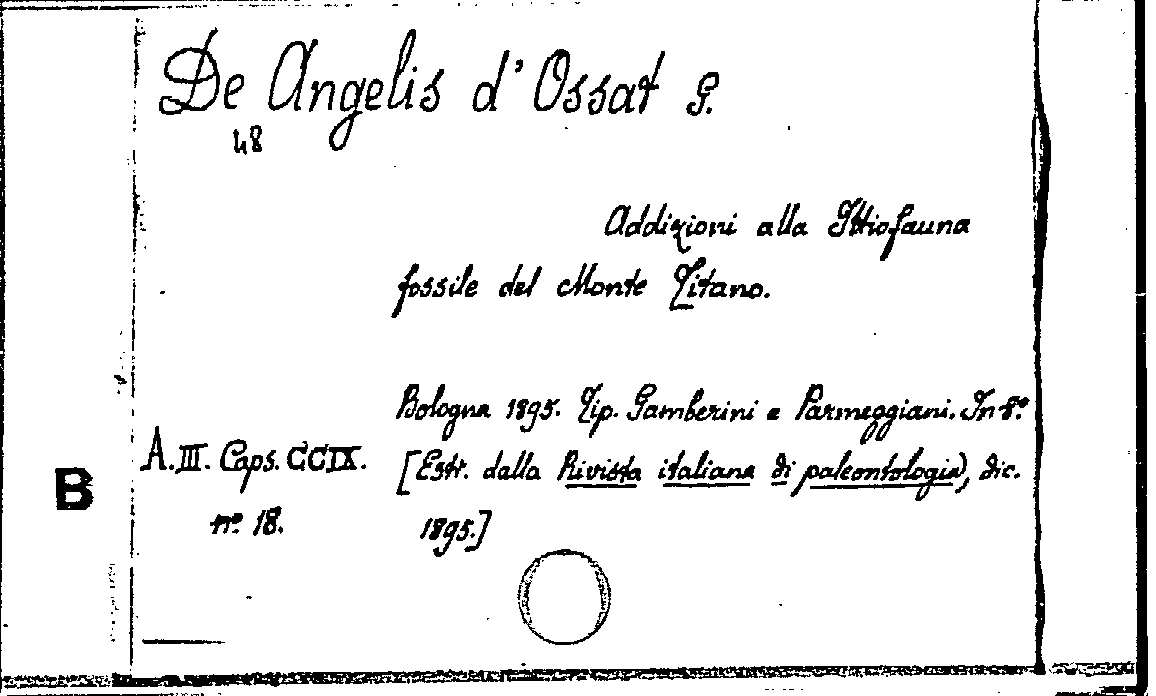 De Angelis d'Ossat G.
48
Addizioni alla Ittiofauna
fossile del Monte Titano.
Bologna 1895. Tip. Gamberini e Parmeggiani. In-8º.
A. III. Caps. CCIX.
[Estr. dalla Rivista italiana di paleontologia), dic.
B
nº 18.
1895.]